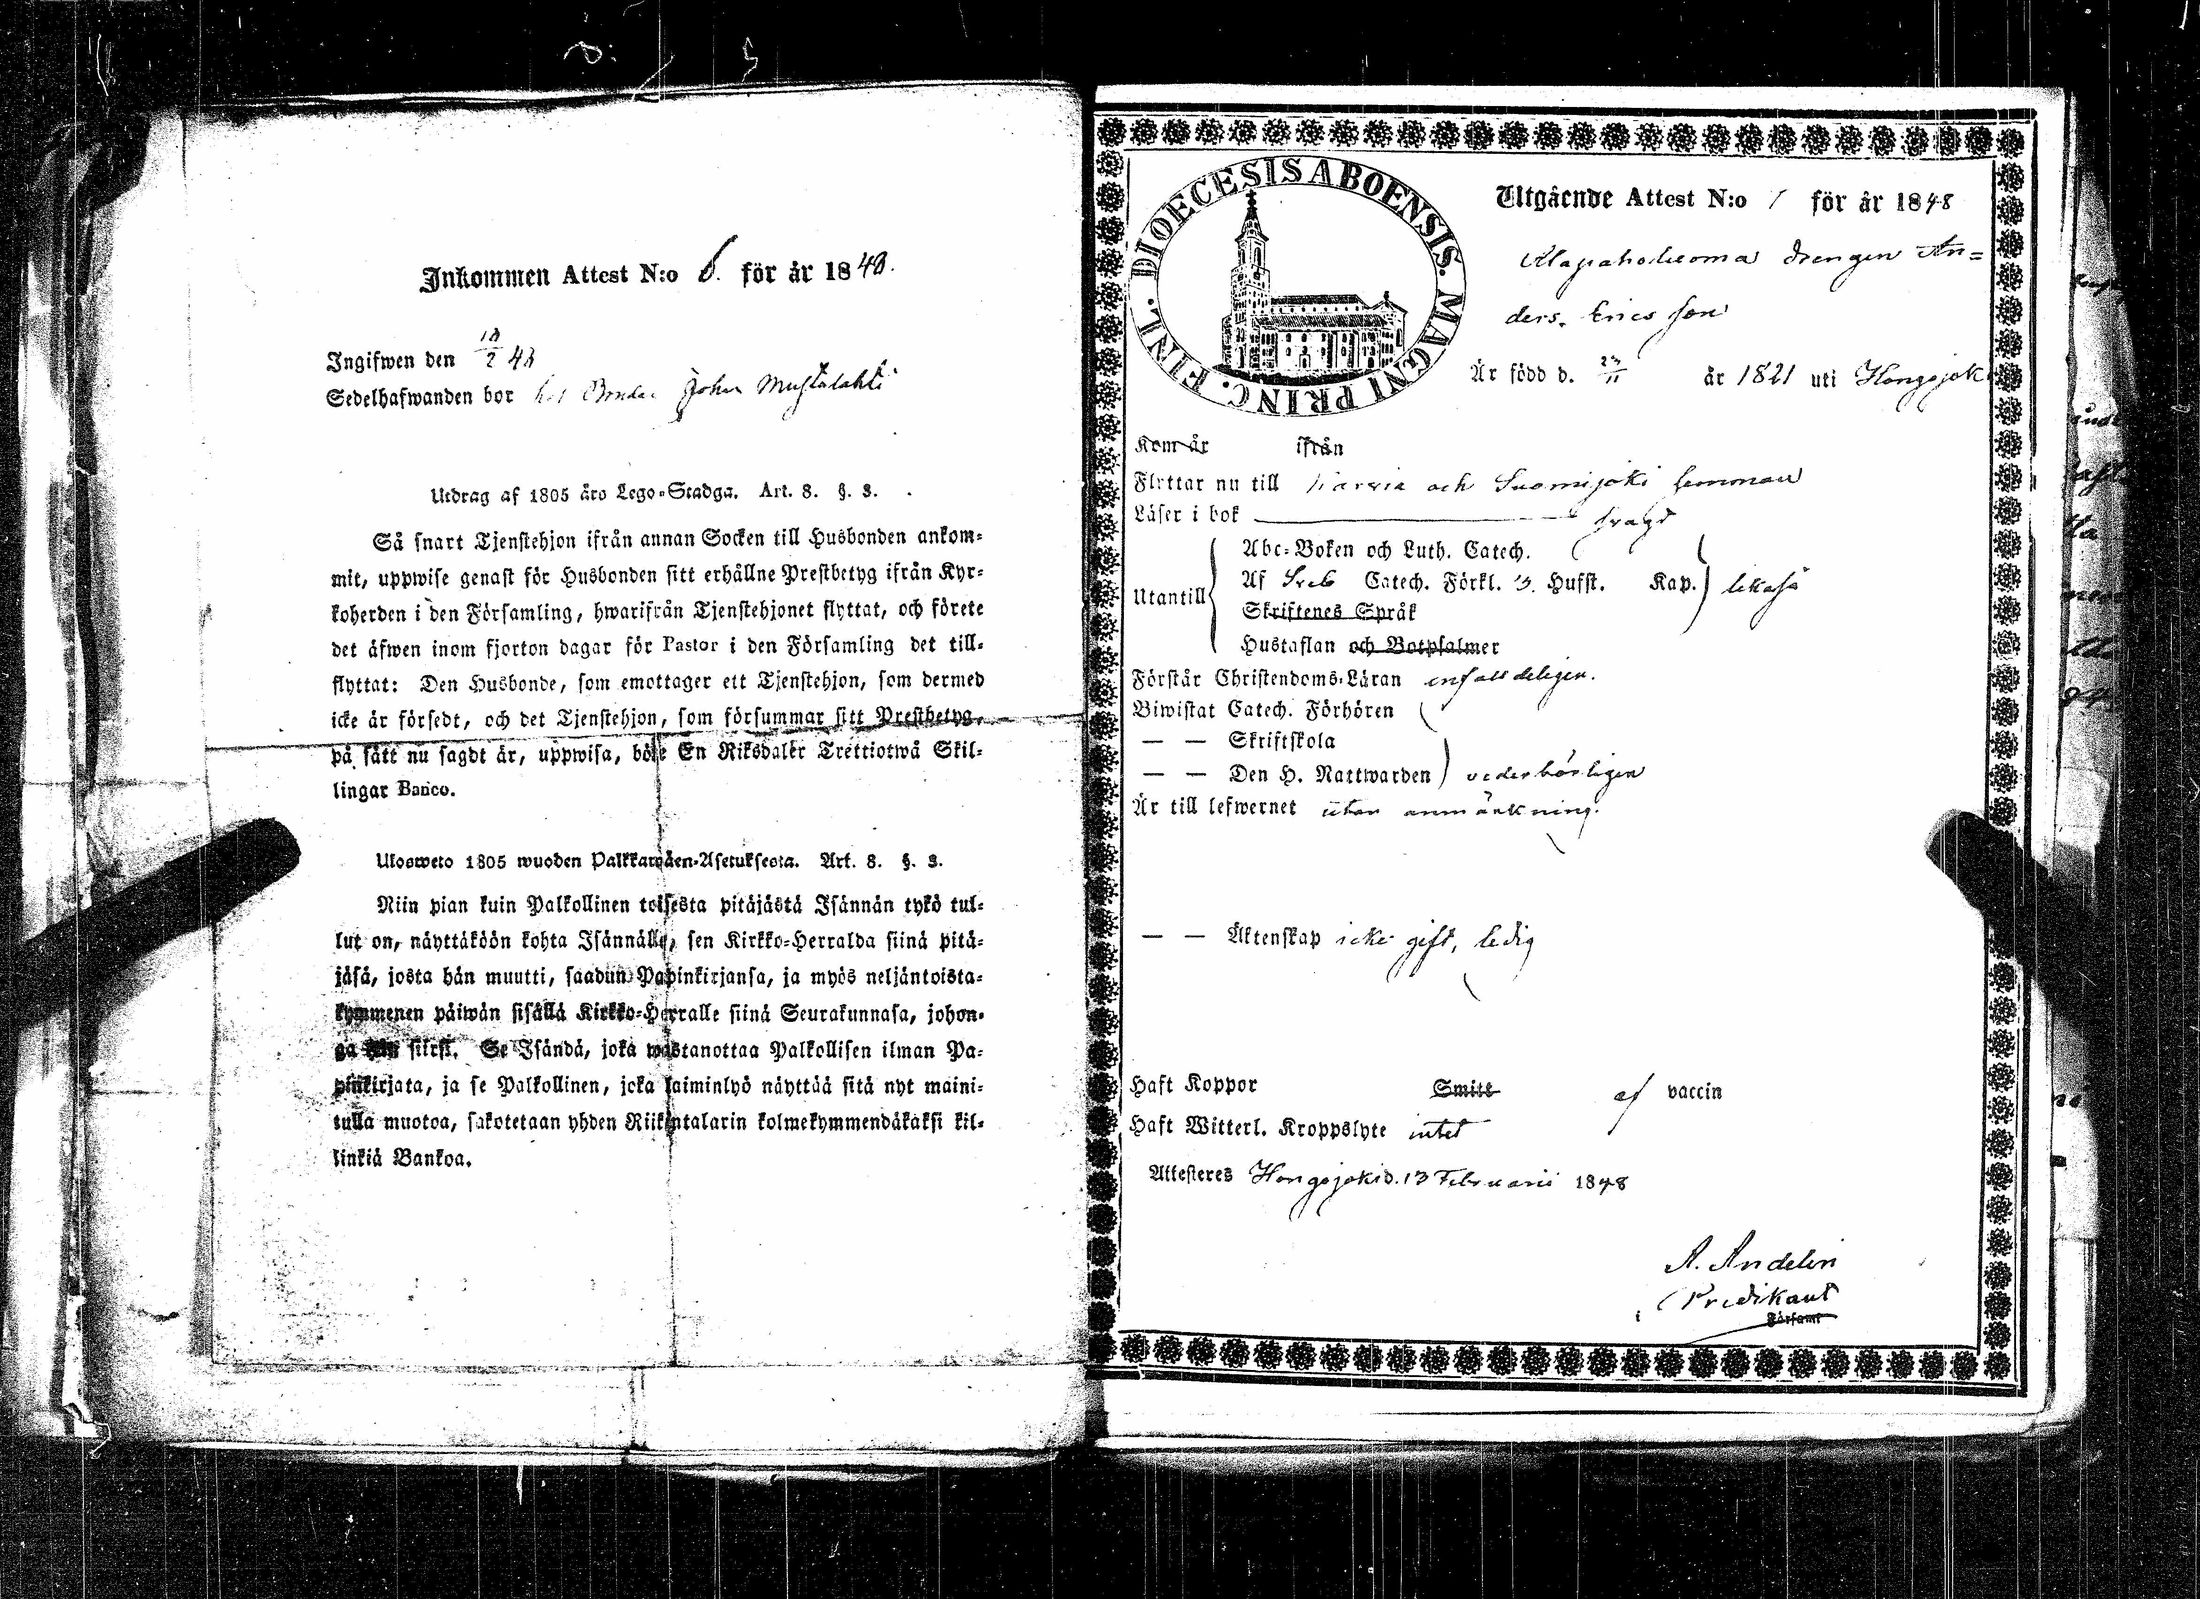 Inkommen Attest N:o 6. för år 1848.
Ingifwen den 18/2 48
Sedelhafwanden bor hos Bonden Johan Mustalahti
Utdrag af 1805 års Lego-Stadga. Art. 8. §. 3.
Så snart Tjenstehjon ifrån annan Socken till Husbonden ankom-
mit, uppwise genast för Husbonden sitt erhållne Prestbetyg ifrån Kyr-
koherden i den Församling, hwarifrån Tjenstehjonet flyttat, och förete
det äfwen inom fjorton dagar för Pastor i den Församling det till-
flyttat: Den Husbonde, som emottager ett Tjenstehjon, som dermed
icke är försedt, och det Tjenstehjon, som försummar sitt Prestbetyg,
på sätt nu sagdt är, uppwisa, böte En Riksdaler Trettiotwå Skil-
lingar Banco.
Ulosweto 1805 wuoden Palkkawäen-Asetuksesta. Art. 8. §. 3.
Niin pian kuin Palkollinen toisesta pitäjästä Isännän tykö tul-
lut on, näyttäköön kohta Isännälle, sen Kirkko-Herralda siinä pitä-
jäsä, josta hän muutti, saadun Papinkirjansa, ja myös neljäntoista-
kymmenen päiwän sisällä Kirkko-Herralle siinä Seurakunnasa, johon-
ga hän siirsi. Se Isändä, joka wastanottaa Palkollisen ilman Pa-
pinkirjata, ja se Palkollinen, joka laiminlyö näyttää sitä nyt maini-
tulla muotoa, sakotetaan yhden Riikintalarin kolmekymmendäkaksi kil-
linkiä Bankoa.
DIOECESIS ABOENSIS. MAGNI PRINC. FINL.
Utgående Attest N:o 1 för år 1848
drengen An=
ders. Ericsson
Är född d. 23/11 år 1821 uti Hongojoki
Kom år ifrån
Flyttar nu till Karvia och Suomijoki
Läser i bok svagt
Utantill
Abc-Boken och Luth. Catech.
Af Sveb Catech. Förkl. 3. Hufst. Kap. likaså
Skriftenes Språk
Hustaflan och Botpsalmer
Förstår Christendoms-Läran enfalldeligen.
Biwistat Catech. Förhören
— — Skriftskola
— — Den H. Nattwarden vederbörligen
Är till lefwernet utan anmärkning.
— — Äktenskap icke gift, ledig
Haft Koppor Smitt af vaccin
Haft Witterl. Kroppslyte intet
Attesteres Hongojoki d. 13 Februarii 1848
A. Andelin
Predikant
i Församl